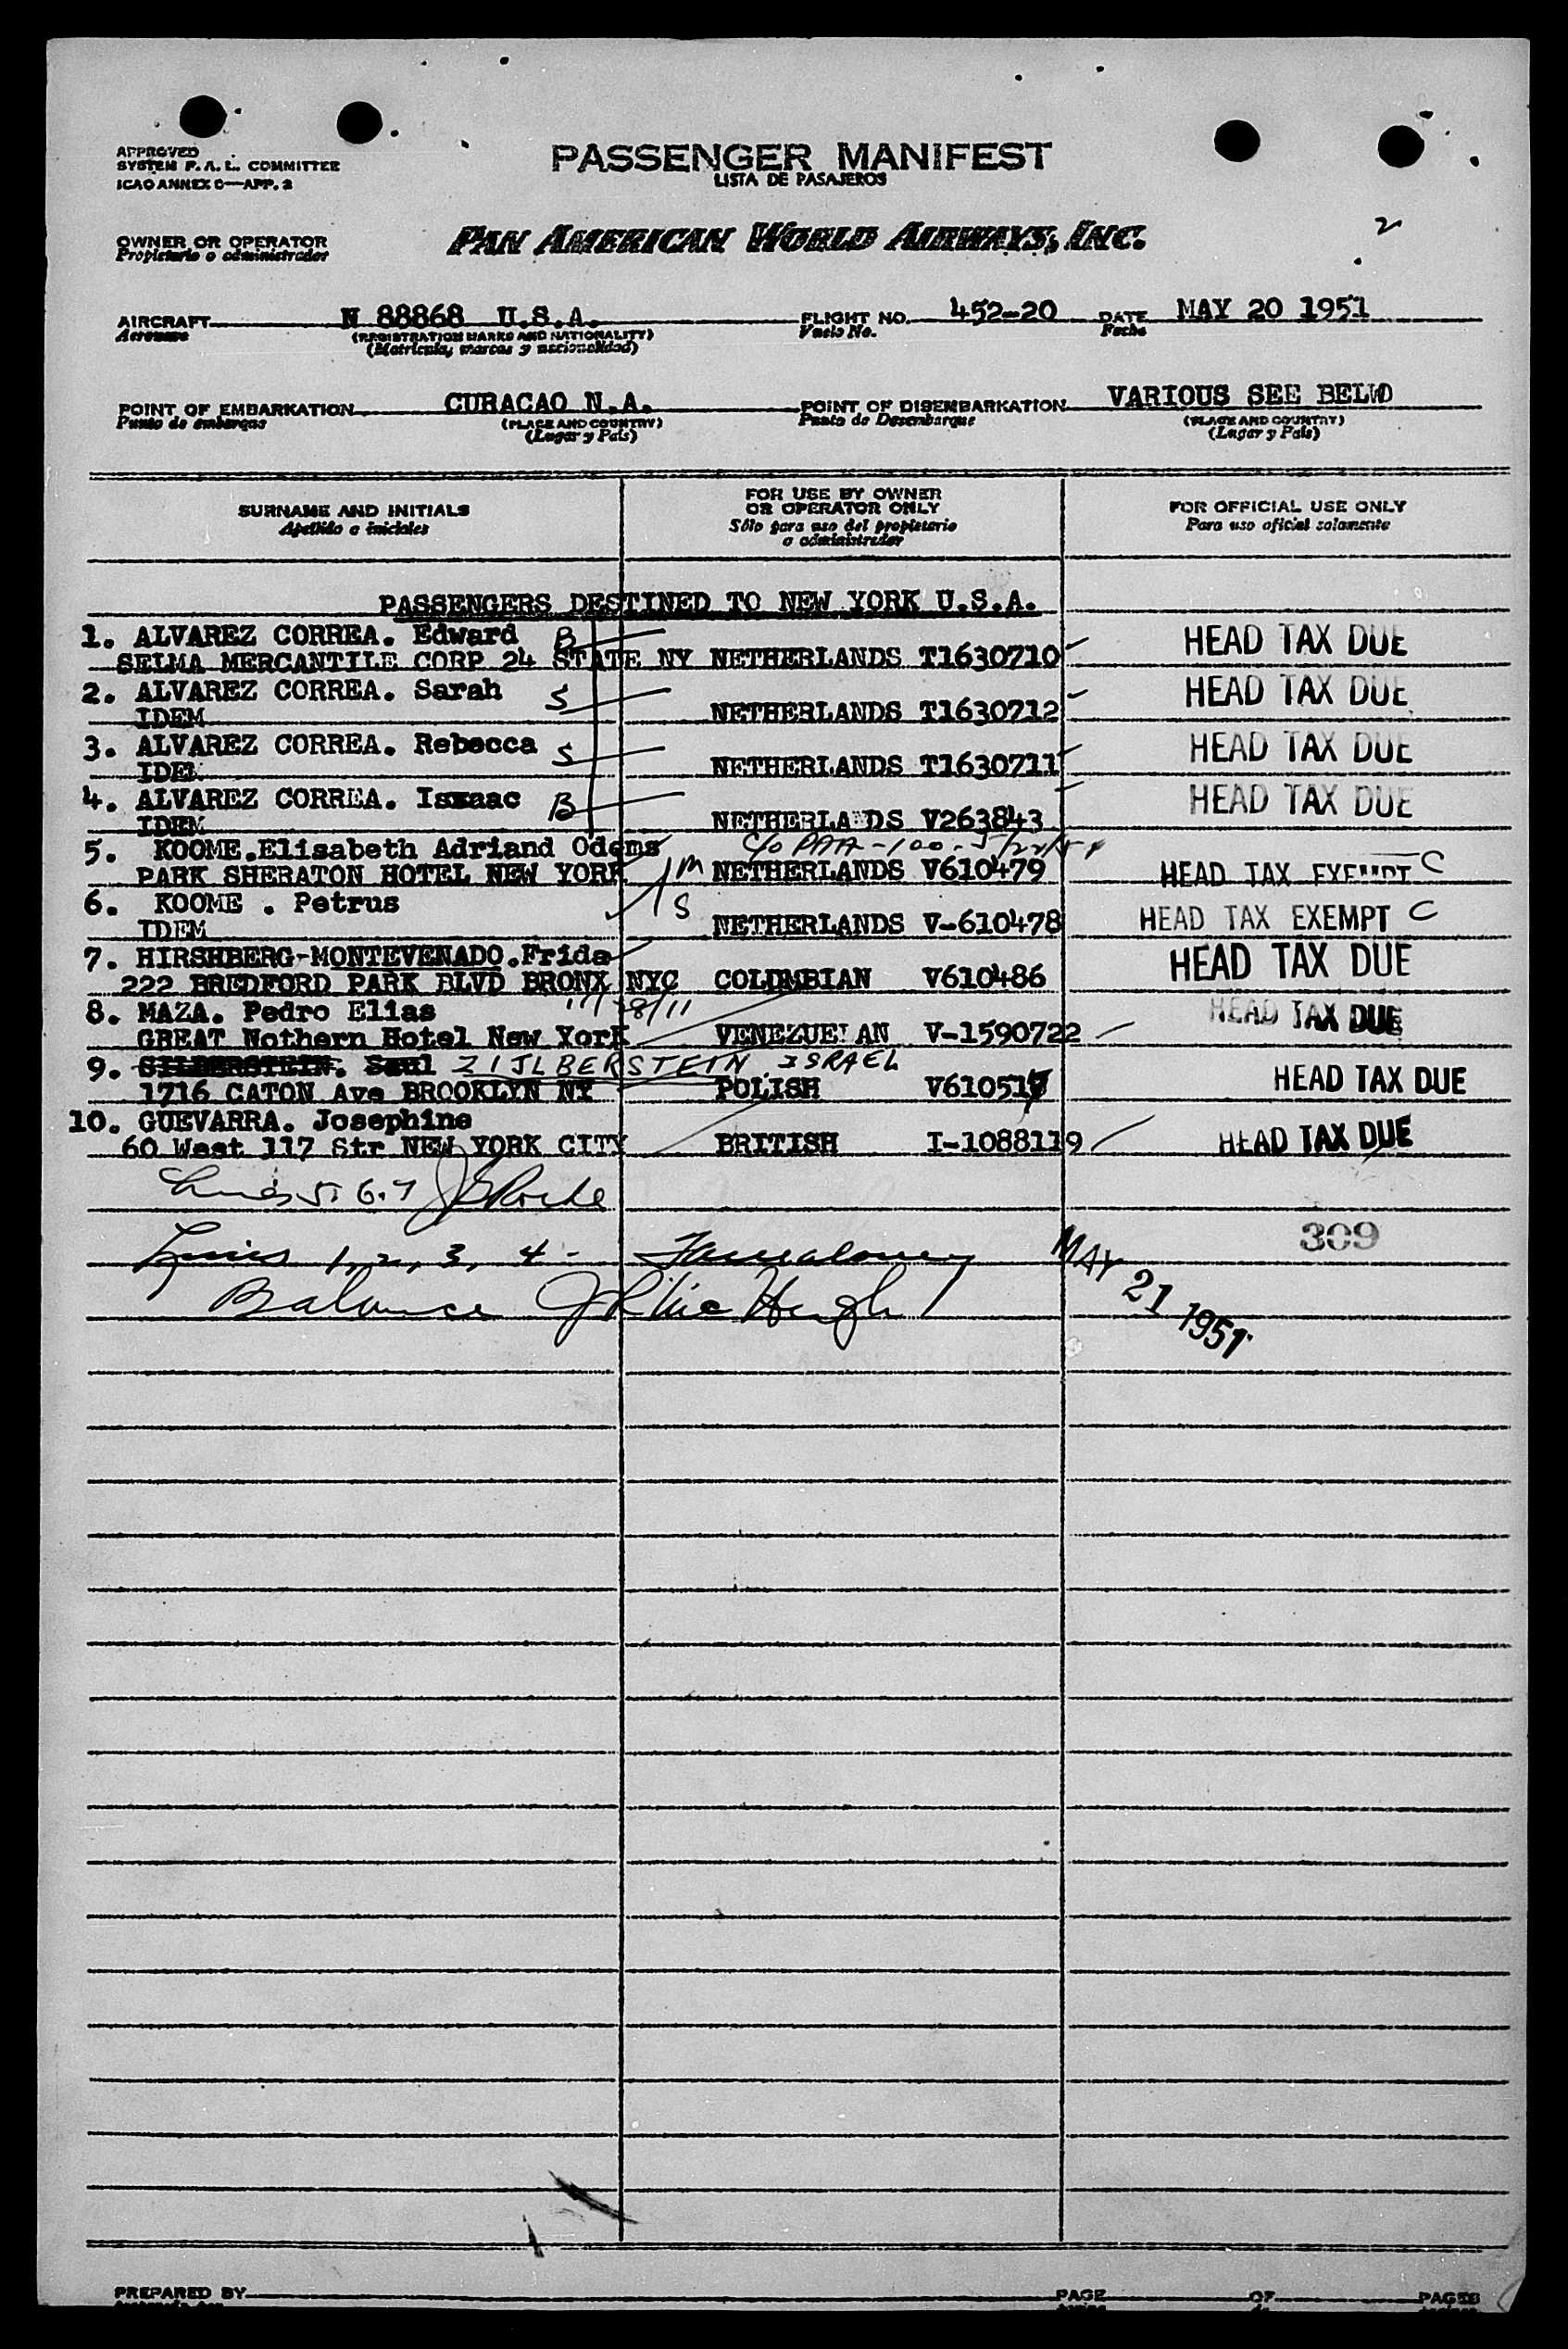 APPROVED
SYSTEM F. A. L. COMMITTEE
ICAO ANNEX 9—APP. 2
PASSENGER MANIFEST
LISTA DE PASAJEROS
2
OWNER OR OPERATOR
Propietario o administrador
PAN AMERICAN WORLD AIRWAYS, INC.
AIRCRAFT N 88868 U.S.A. FLIGHT NO. 452-20 DATE MAY 20 1951
Aeronave (REGISTRATION MARKS AND NATIONALITY) Vuelo No. Fecha
(Matricula, marcas y nacionalidad)
POINT OF EMBARKATION CURACAO N.A. POINT OF DISEMBARKATION VARIOUS SEE BELWO
Punto de embarque (PLACE AND COUNTRY) Punto de Desembarque (PLACE AND COUNTRY)
(Lugar y Pais) (Lugar y Pais)
SURNAME AND INITIALS
Apellido e iniciales
FOR USE BY OWNER
OR OPERATOR ONLY
Sólo para uso del propietario
o administrador
FOR OFFICIAL USE ONLY
Para uso oficial solamente
PASSENGERS DESTINED TO NEW YORK U.S.A.
1. ALVAREZ CORREA. Edward B HEAD TAX DUE
SELMA MERCANTILE CORP 24 STATE NY NETHERLANDS T1630710
2. ALVAREZ CORREA. Sarah S HEAD TAX DUE
IDEM NETHERLANDS T1630712
3. ALVAREZ CORREA. Rebecca S HEAD TAX DUE
IDEM NETHERLANDS T1630711
4. ALVAREZ CORREA. Issaac B HEAD TAX DUE
IDEM NETHERLANDS V263843
5. KOOME.Elisabeth Adriand Odems c/o PAA-100-
PARK SHERATON HOTEL NEW YORK M NETHERLANDS V610479 HEAD TAX EXEMPT C
6. KOOME . Petrus S
IDEM NETHERLANDS V-610478 HEAD TAX EXEMPT C
7. HIRSHBERG-MONTEVENADO.Frida
222 BREDFORD PARK BLVD BRONX NYC COLUMBIAN V610486 HEAD TAX DUE
8. MAZA. Pedro Elias
GREAT Nothern Hotel New York VENEZUELAN V-1590722 HEAD TAX DUE
9. SILBERSTEIN. Saul ZIJLBERSTEIN ISRAEL
1716 CATON Ave BROOKLYN NY POLISH V610517 HEAD TAX DUE
10. GUEVARRA. Josephine
60 West 117 Str NEW YORK CITY BRITISH I-1088119 HEAD TAX DUE
Lines 5. 6. 7
309
Lines 1, 2, 3, 4 -
MAY 21 1951
Balance
PREPARED BY PAGE OF PAGES